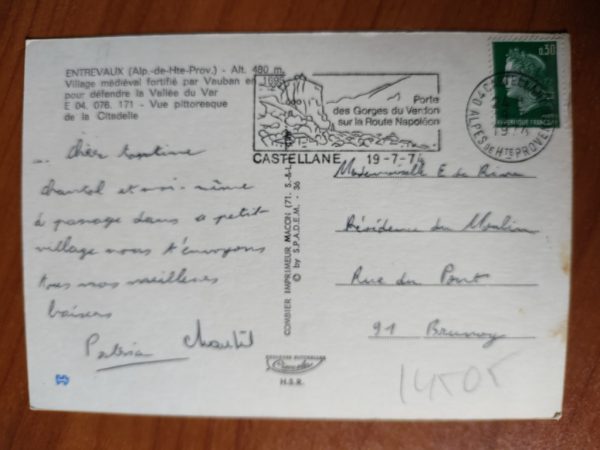 ENTREVAUX (Alp.-de-Hte-Prov.) - Alt. 480 m.
Village médiéval fortifié par Vauban en 1695
pour défendre la Vallée du Var
E 04. 076. 171 - Vue pittoresque
de la Citadelle
Porte
des Gorges du Verdon
sur la Route Napoléon
CASTELLANE 19-7-74
0,30
REPUBLIQUE FRANÇAISE
ALPES DE HTE PROVENCE
chantal et moi-même
à passage dans a petit
village nous t'envoyons
tous nos meilleurs
baisers
Chantal
COMBIER IMPRIMEUR MACON (71. S.-&-L.)
© by S.P.A.D.E.M. - 36
Mademoiselle E de
Résidence du Moulin
Rue du Pont
91 Brunoy
H.S.R.